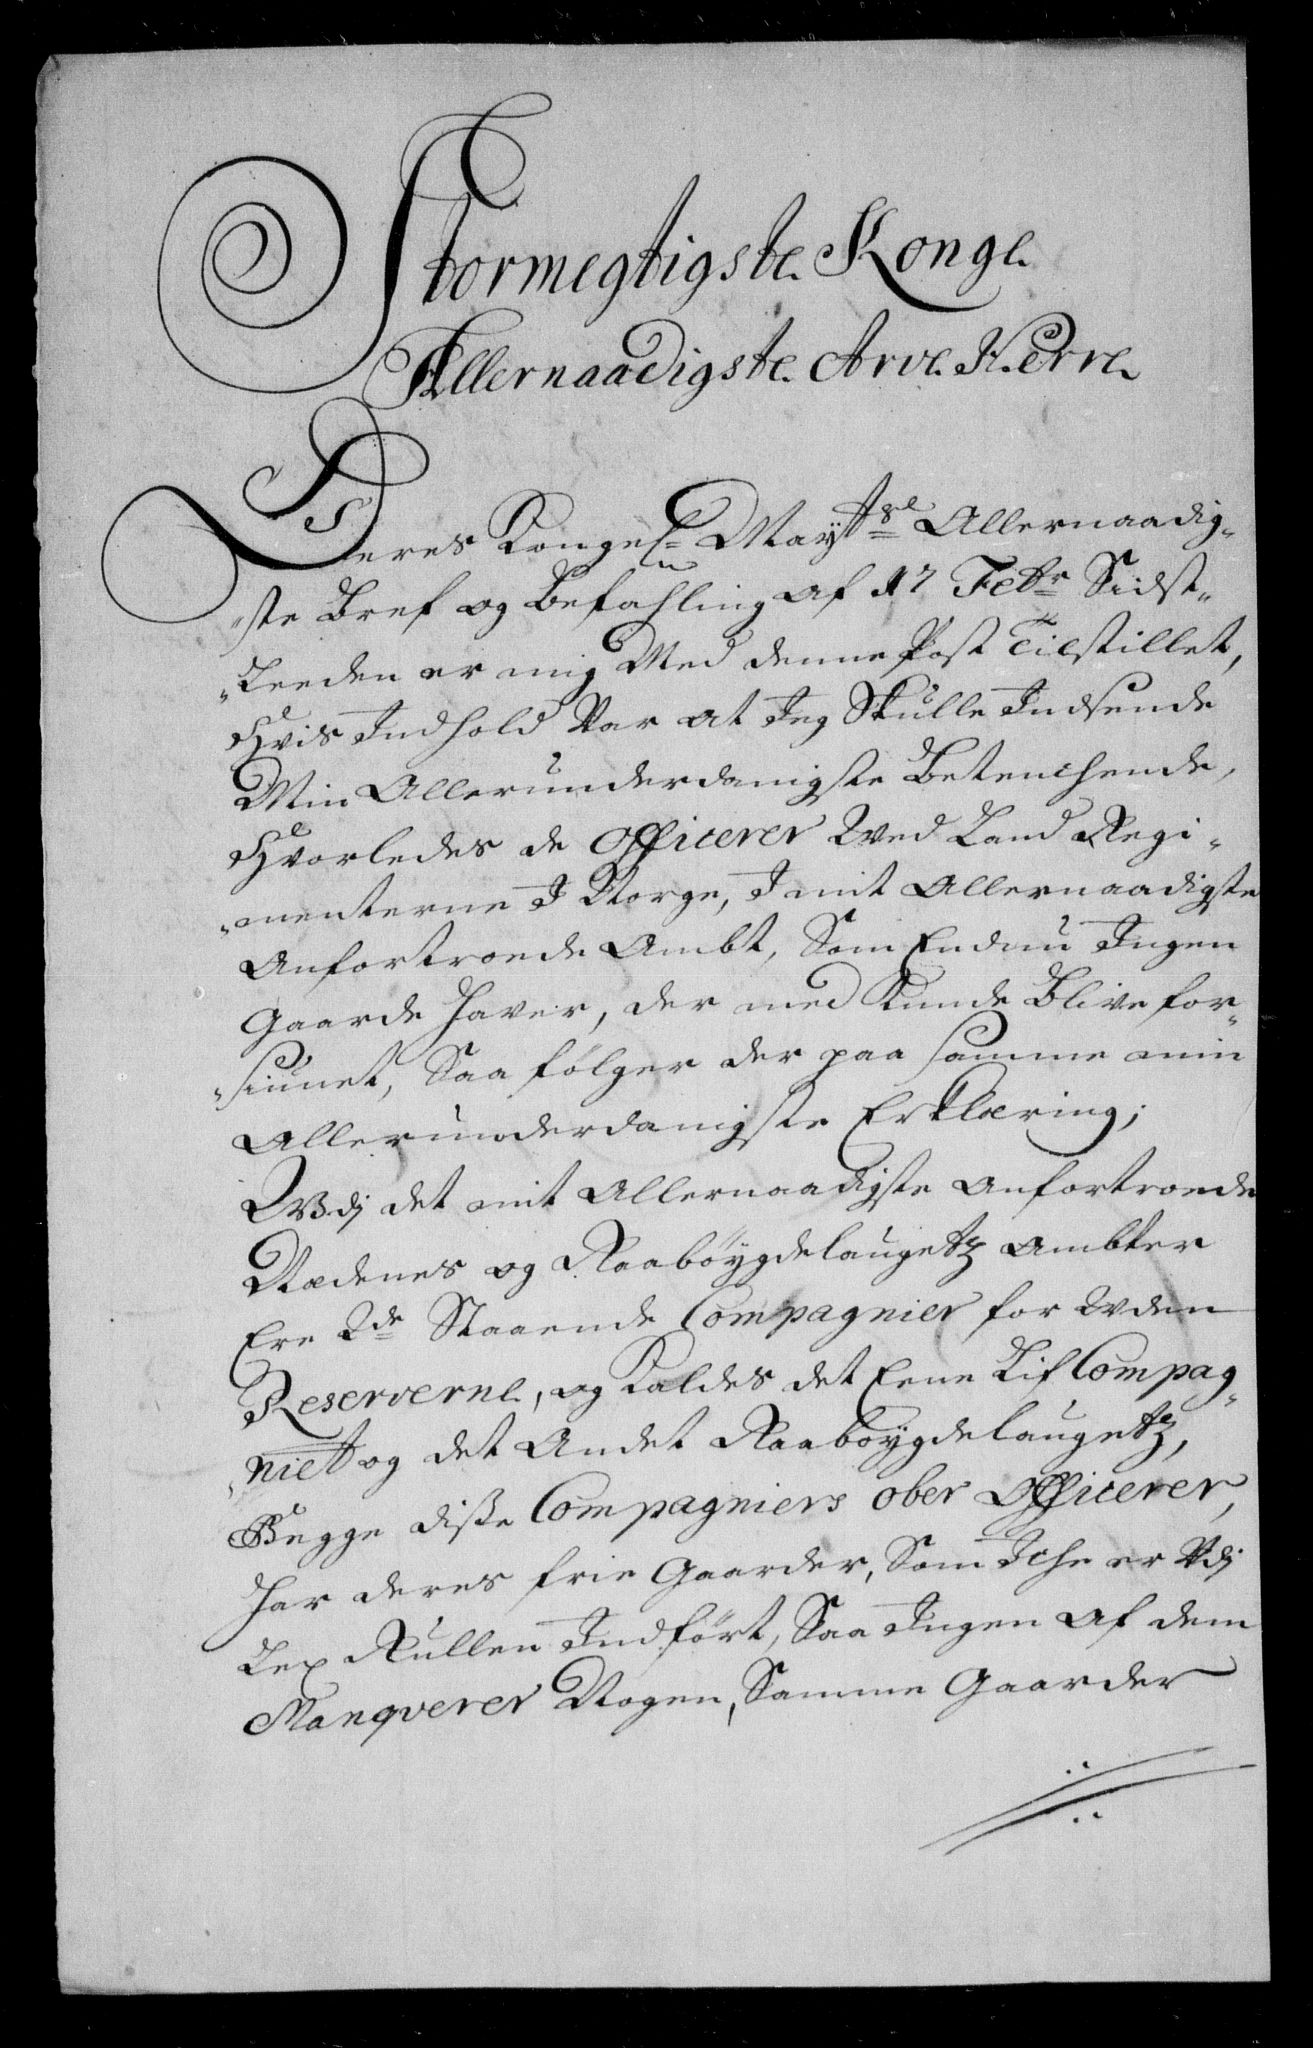 Stormegtigste Konge
Allernaadigste Arve Herre
Deres Kongel: Maytts Allernaadig„
„ste Bref og Befahling af 17 Febr Sidst„
„Leeden er mig Med denne Post Tilstillet,
Hvis Indhold Var at Jeg Skulle Indsende
Min Allerunderdanigste Betenchende,
Hvorledes de Officerer Wed Land Regi„
„menterne I Norge, I mit Allernaadigste
Anfortroede Ambt, Som Endnu Ingen
Gaarde haver, der med Kunde Blive for„
„siunet, Saa følger der paa samme min
Allerunderdanigste Erklæring;
Wdj det mit Allernaadigste anfortroede
Nedenes og Raabøygdelaugetz Ambter
Ere 2de Staaende Compagnier for Wden
Reserverne, og Kaldes det Eene Lif Compag„
„niet og det Andet Raabøygdelaugetz,
Begge disse Compagniers ober Officerer,
har deres frie Gaarder, Som Iche er Udj
Leg Rullen Indført, Saa Ingen af dem
Manqverer Nogen, Samme Gaarder